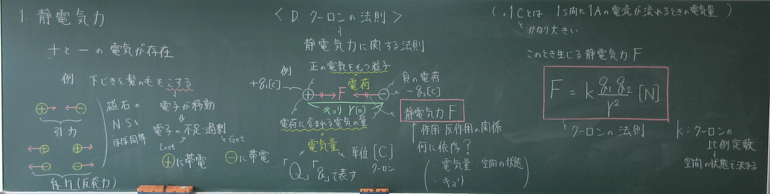 1. 静電気力
+と−の電気が存在
例 下じきと髪の毛をこする
⊕→ ←⊖
引力
斥力(反発力)
磁石の
NSと
ほぼ同等
電子が移動
電子の不足・過剰
Lost Get
⊕に帯電 ⊖に帯電
< D. クーロンの法則 >
静電気力に関する法則
正の電気をもつ粒子
例 +q₁[C] ⊕ F 電荷 ⊖
負の電荷
−q₂[C]
キョリ r[m]
電荷に含まれる電気の量
電気量 単位[C]
クーロン
「Q」「q」で表す
静電気力 F
作用反作用の関係
何に依存?
・電気量 空間の状態
・キョリ
(・1Cとは 1s間に1Aの電流が流れるときの電気量)
かなり大きい
このとき生じる静電気力 F
F = k q₁ q₂ / r² [N]
クーロンの法則
k:クーロンの
比例定数
空間の状態で決まる